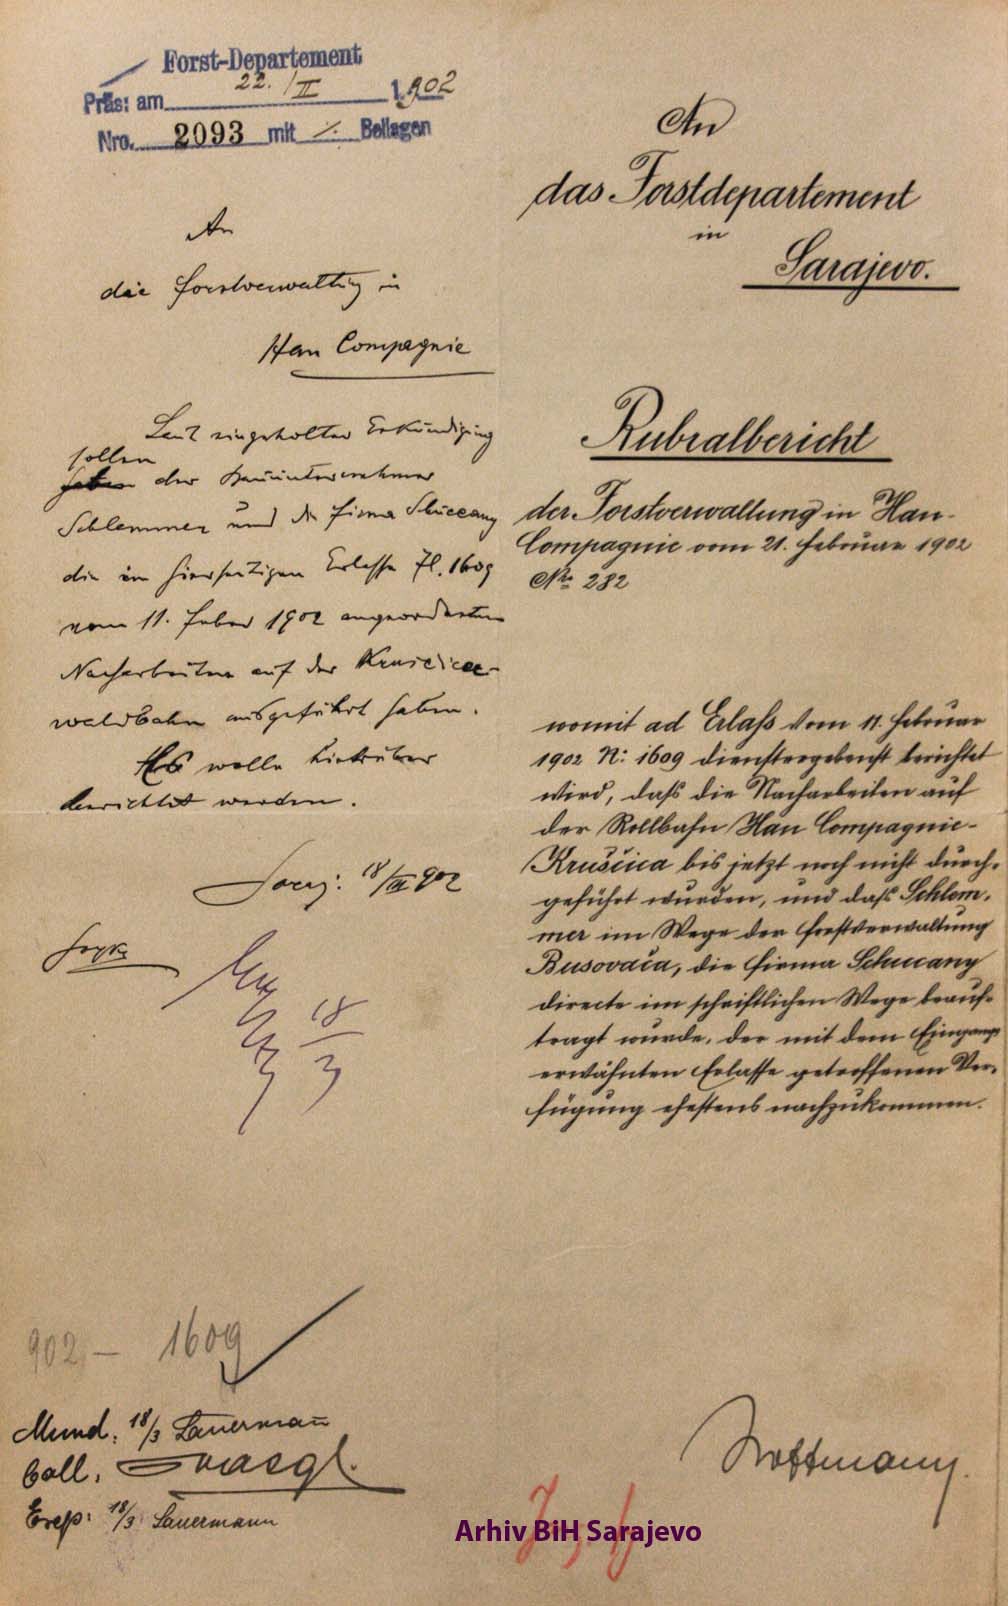 Forst-Departement
Präs: am 22./II 1902
Nro. 2093 mit ./. Beilagen
An
die Forstverwaltung in
Han Compagnie
Laut eingeholter Erkundigung
sollen
haben der Bauunternehmer
Schlemmer und die Firma Schuccany
die im hierseitigen Erlasse Zl. 1609
vom 11. Feber 1902 angeordneten
Nacharbeiten auf der Kruščica-
waldbahn ausgeführt haben.
Es wolle hierüber
berichtet werden.
18/III 902
18/3
902 – 1609
Mund: 18/3 Lauermann
Coll.
Exp: 18/3 Lauermann
An
das Forstdepartement
in
Sarajevo.
Rubralbericht
der Forstverwaltung in Han-
Compagnie vom 21. Februar 1902
No 282
womit ad Erlaß vom 11. Februar
1902 N: 1609 dienstergebenst berichtet
wird, daß die Nacharbeiten auf
der Rollbahn Han Compagnie-
Kruščica bis jetzt noch nicht durch-
geführt wurden, und daß Schlem-
mer im Wege der Forstverwaltung
Busovača, die Firma Schucany
directe im schriftlichen Wege beauf-
tragt wurde, der mit dem Eingangs
erwähnten Erlasse getroffenen Ver-
fügung ehestens nachzukommen.
Arhiv BiH Sarajevo